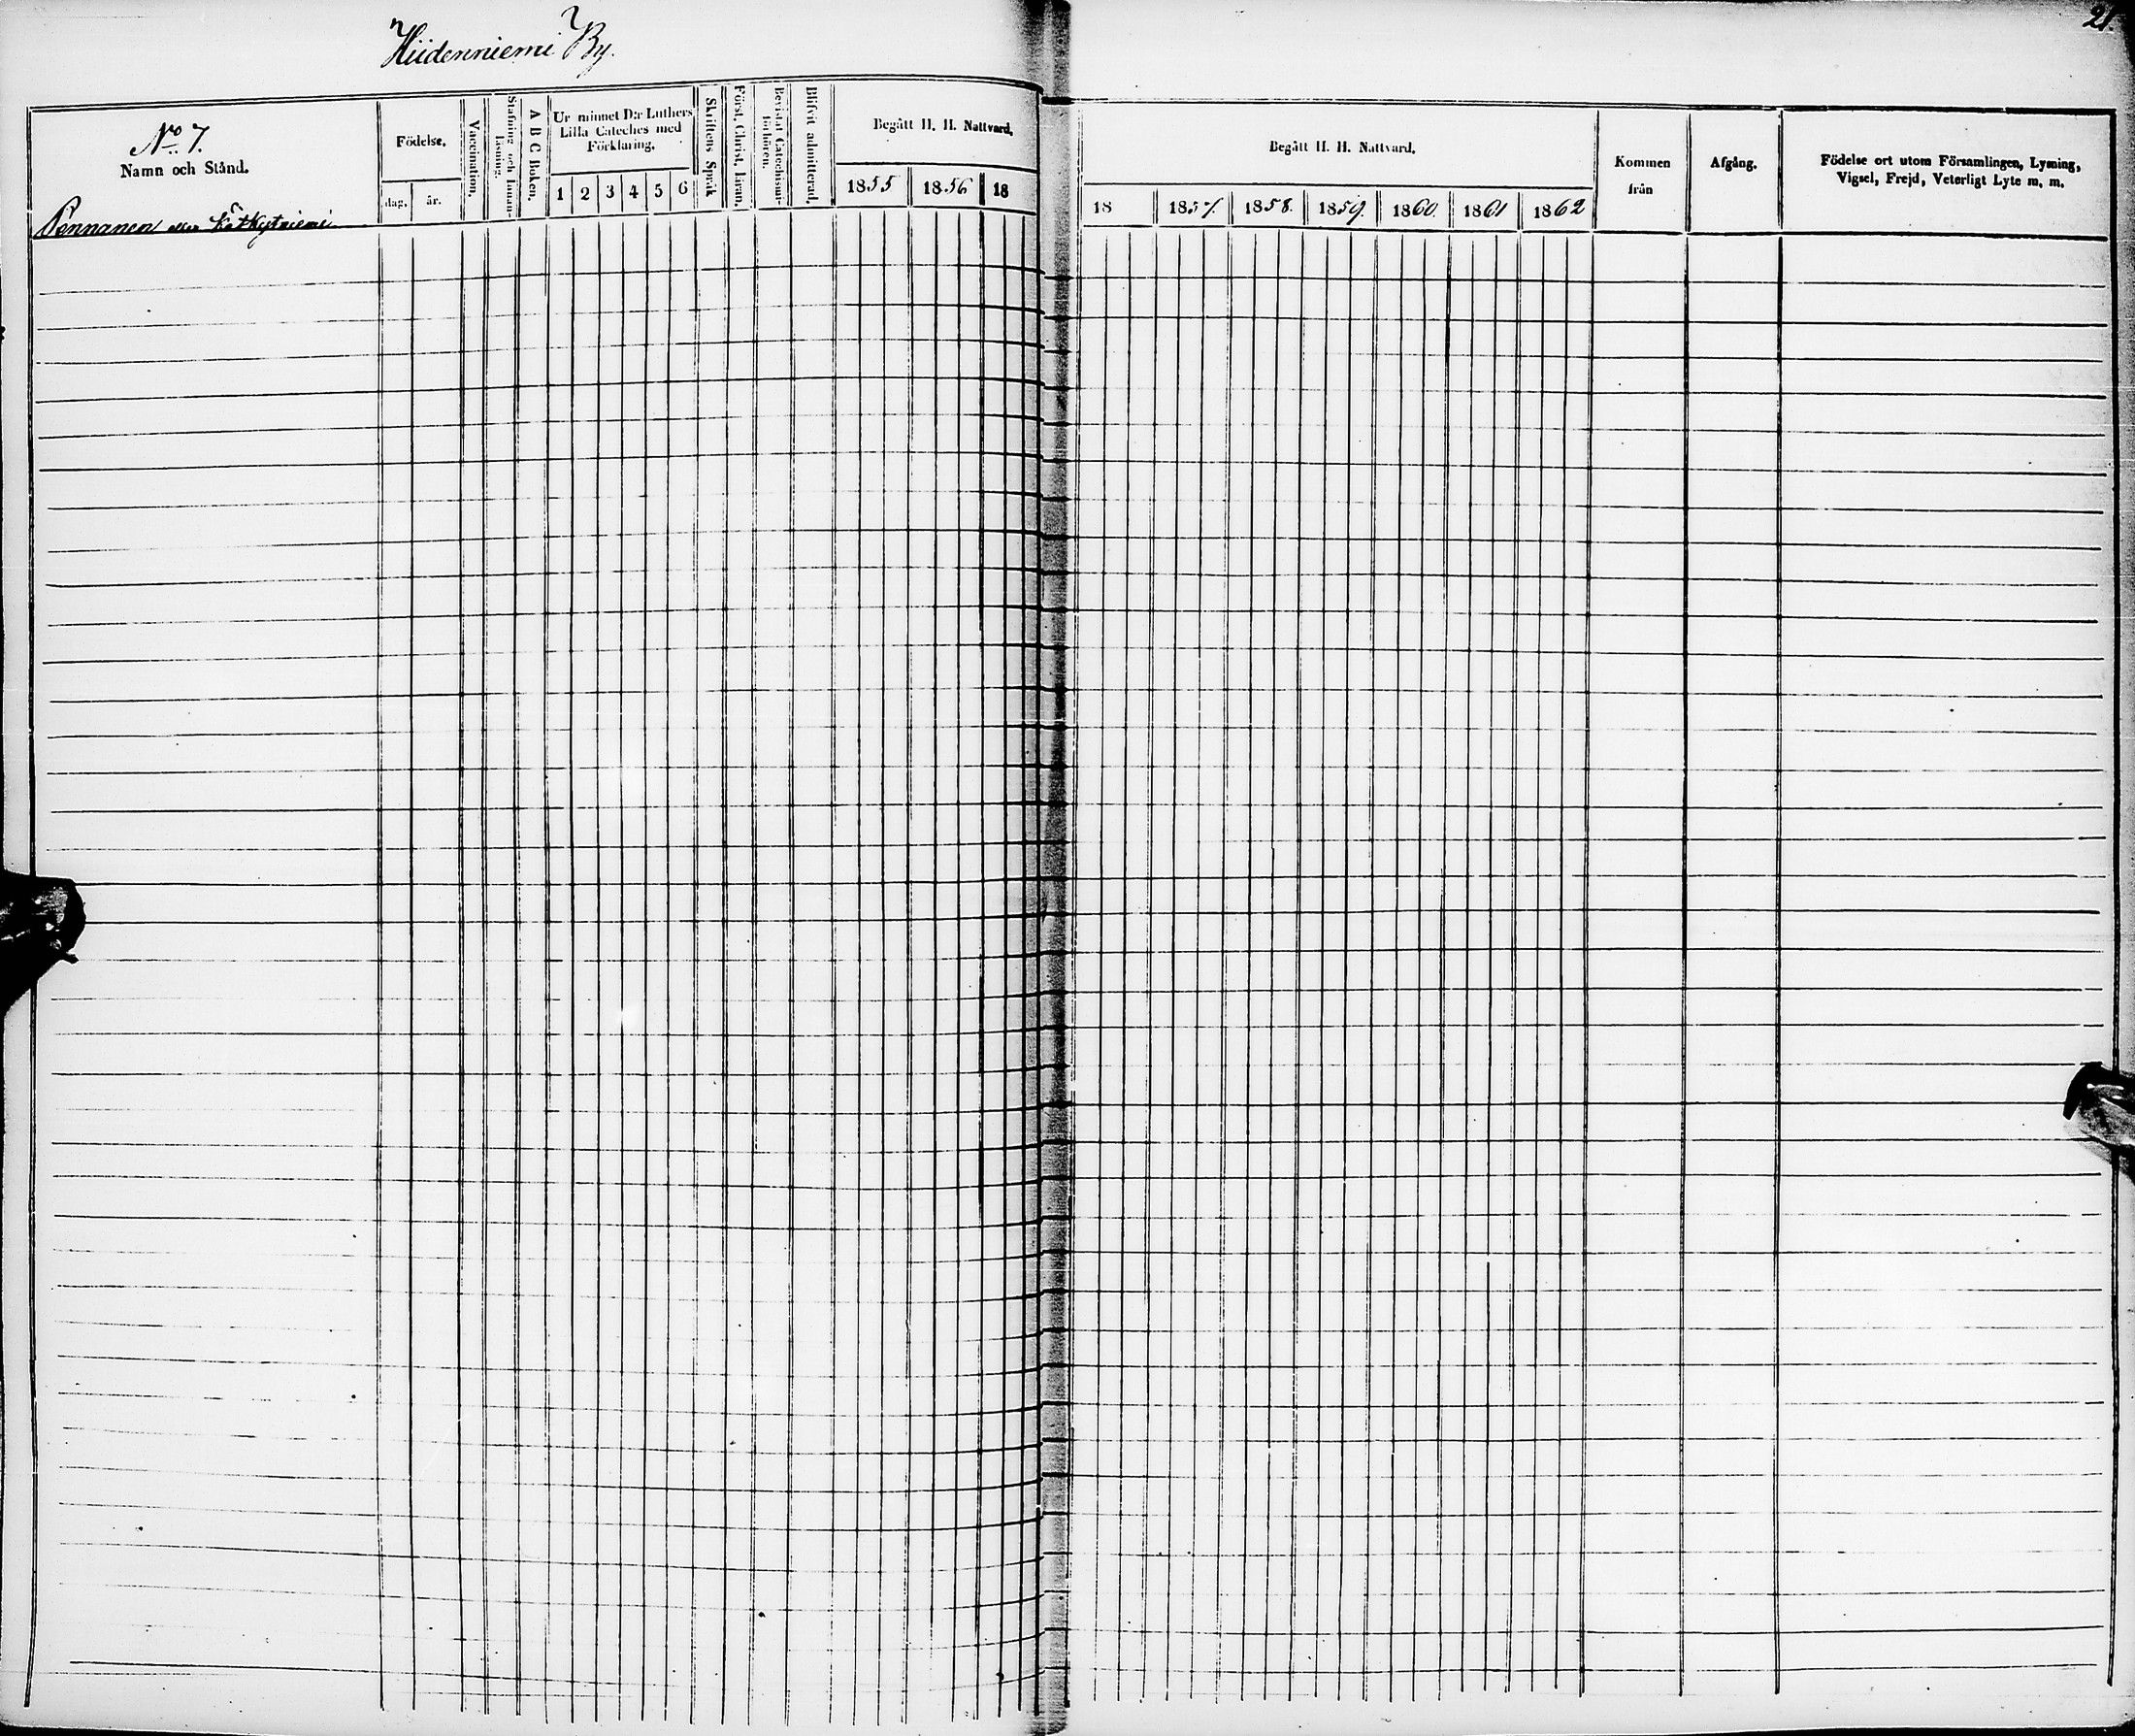 Hiidenniemi By.
21.
No 7.
Namn och Stånd.
Födelse.
dag.
år.
Vaccination.
Stafning och Innan-
läsning.
A B C Boken.
Ur minnet D:r Luthers
Lilla Cateches med
Förklaring.
1 2 3 4 5 6
Skriftens Språk
Först. Christ. läran.
Bevistat Catechismi-
förhören.
Blifvit admitterad.
Begått H. H. Nattvard.
1855 1856 18
Begått H. H. Nattvard.
18 1857. 1858. 1859. 1860. 1861 1862
Kommen
från
Afgång.
Födelse ort utom Församlingen, Lysning,
Vigsel, Frejd, Veterligt Lyte m. m.
Pennanen eller